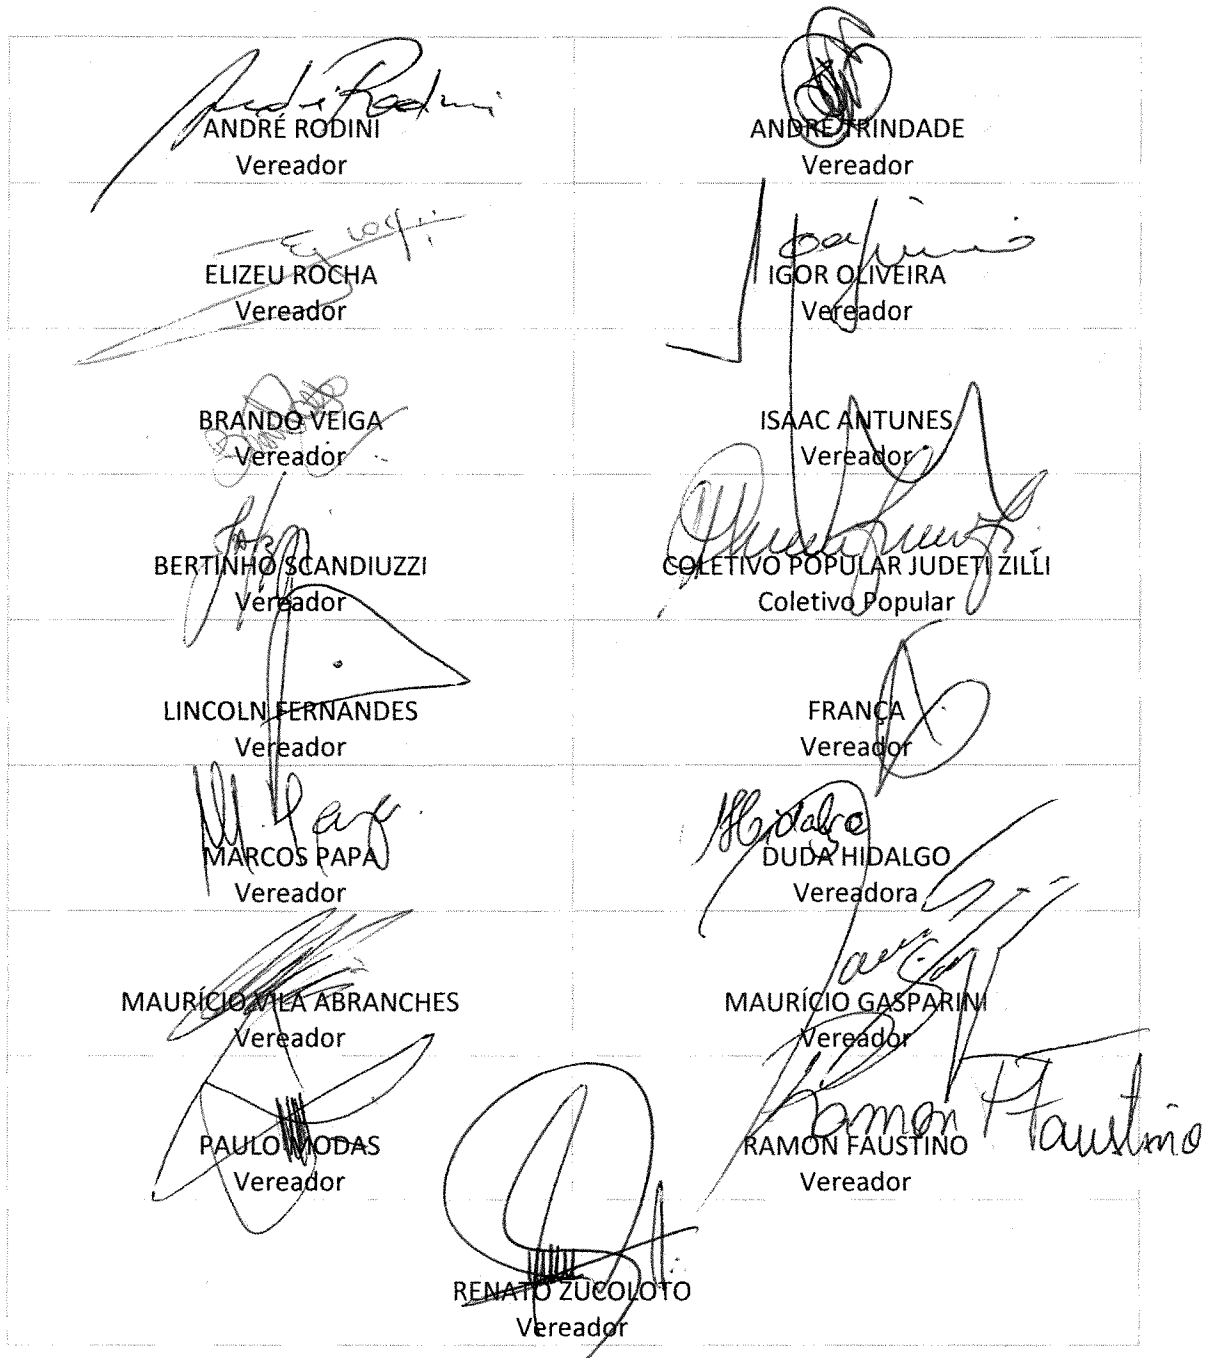 André Rodini
ANDRÉ RODINI
Vereador
ANDRÉ TRINDADE
Vereador
ELIZEU ROCHA
Vereador
IGOR OLIVEIRA
Vereador
BRANDO VEIGA
Vereador
ISAAC ANTUNES
Vereador
BERTINHO SCANDIUZZI
Vereador
COLETIVO POPULAR JUDETI ZILLI
Coletivo Popular
LINCOLN FERNANDES
Vereador
FRANÇA
Vereador
MARCOS PAPA
Vereador
Hidalgo
DUDA HIDALGO
Vereadora
MAURÍCIO VILA ABRANCHES
Vereador
MAURÍCIO GASPARINI
Vereador
PAULO MODAS
Vereador
Ramon Faustino
RAMON FAUSTINO
Vereador
RENATO ZUCOLOTO
Vereador